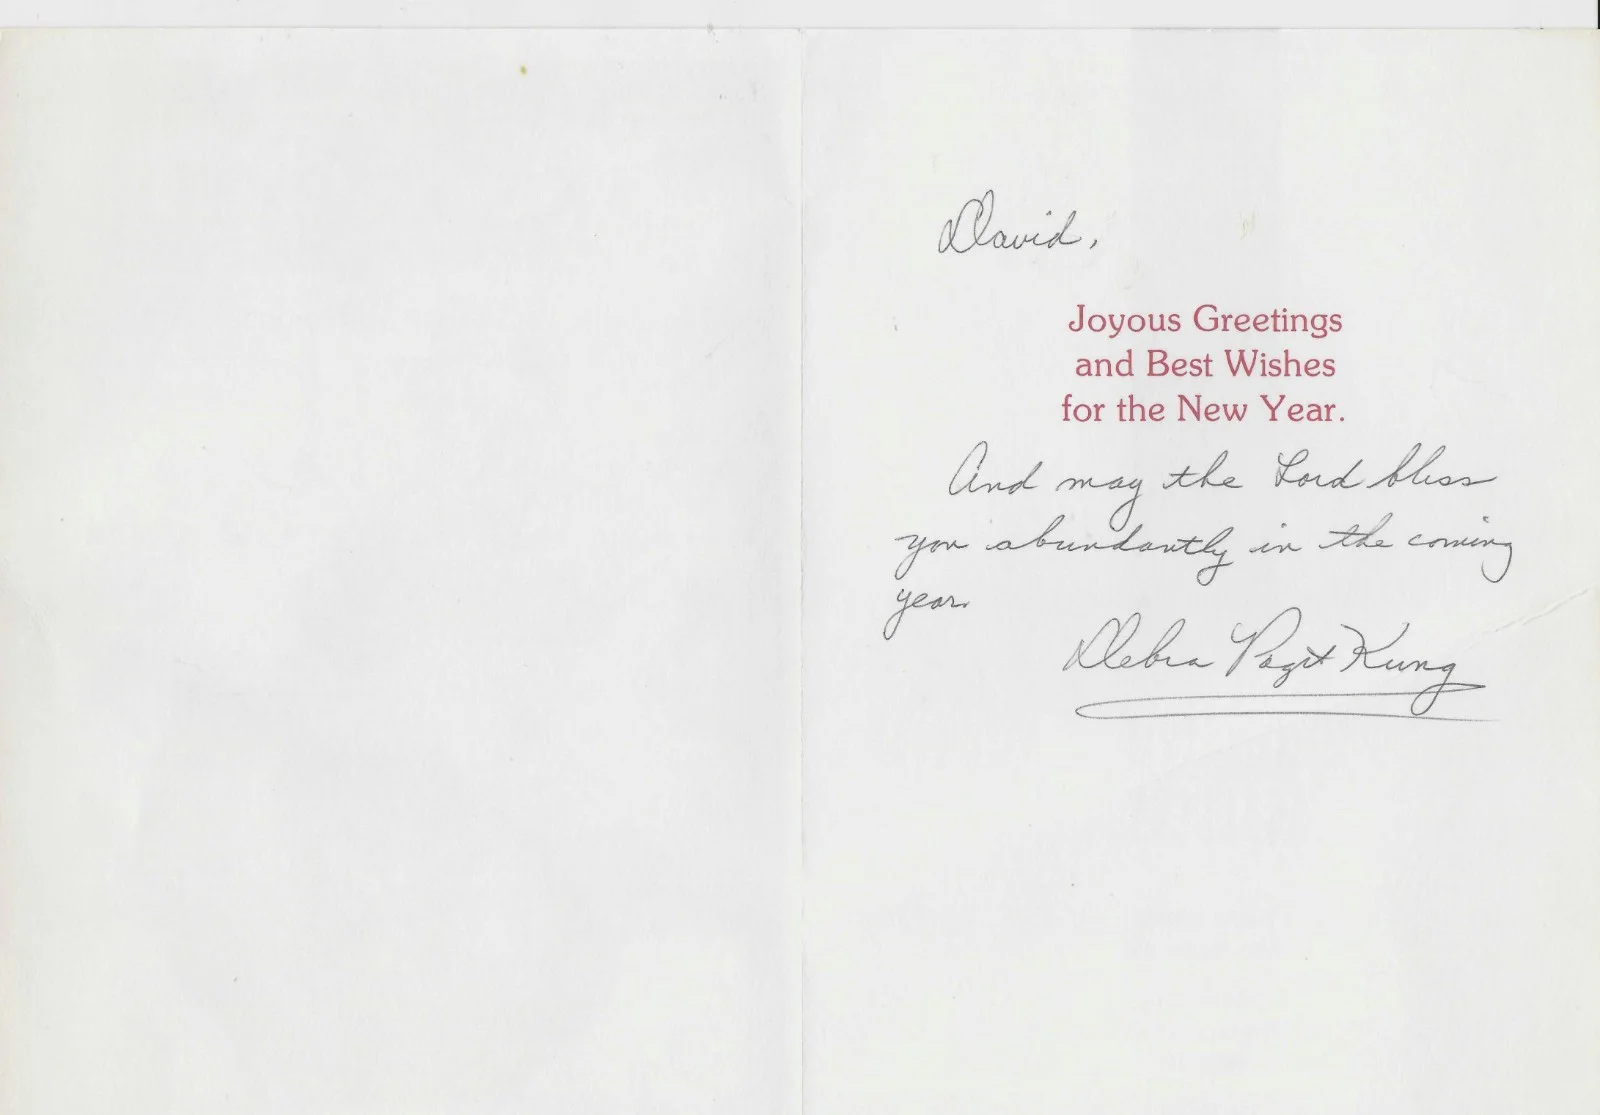 David,
Joyous Greetings
and Best Wishes
for the New Year.
And may the Lord bless
you abundantly in the coming
year.
Debra Paget Kung